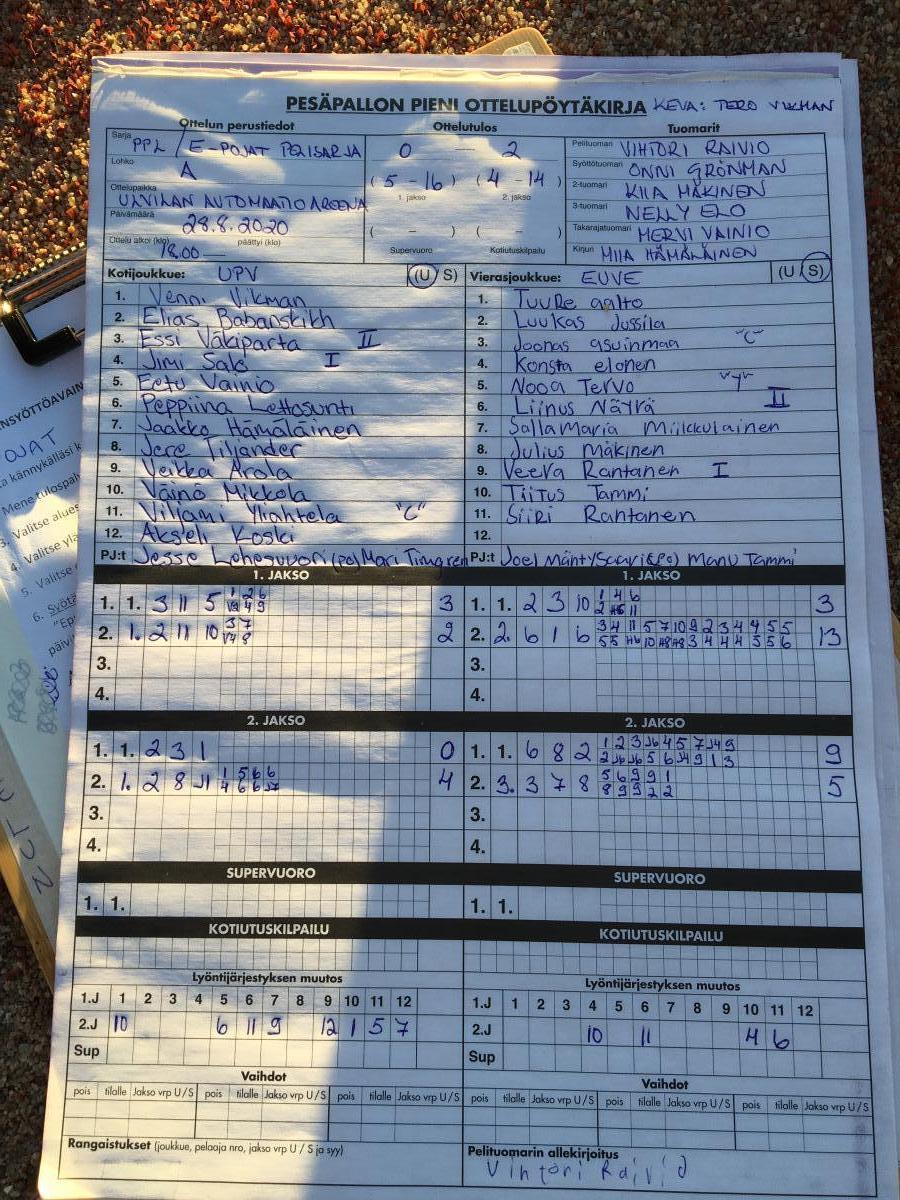 PESÄPALLON PIENI OTTELUPÖYTÄKIRJA KEVA: TERO VIKMAN
Ottelun perustiedot Ottelutulos Tuomarit
Sarja PPL / E-POJAT PERUSARJA 0 — 2 Pelituomari VIHTORI RAIVIO
Lohko A (5 - 16) (4 - 14) Syöttötuomari ONNI GRÖNMAN
1. jakso 2. jakso 2-tuomari KIIA MÄKINEN
Ottelupaikka ULVILAN AUTOMAATIO AREENA 3-tuomari NELLY ELO
Päivämäärä 28.8.2020 ( - ) ( - ) Takarajatuomari MERVI VAINIO
Ottelu alkoi (klo) 18.00 päättyi (klo) Supervuoro Kotiutuskilpailu Kirjuri MIIA HÄMÄLÄINEN
Kotijoukkue: UPV (U S) Vierasjoukkue: EUVE (U S)
1. Venni Vikman 1. Tuure aalto
2. Elias Babanskikh 2. Luukas Jussila
3. Essi Väkiparta II 3. Joonas asuinmaa "C"
4. Jimi Salo I 4. Konsta elonen
5. Eetu Vainio 5. Nooa Tervo "y"
6. Peppiina Lettosunti 6. Liinus Näyrä II
7. Jaakko Hämäläinen 7. Sallamaria Miikkulainen
8. Jere Tiljander 8. Julius mäkinen
9. Veikka Arola 9. Veeva Rantanen I
10. Väinö Mikkola 10. Tiitus Tammi
11. Viljami Yliahtela "C" 11. Siiri Rantanen
12. Akseli Koski 12.
PJ:t Jesse Lehesvuori (pe) Mari Timaren PJ:t Joel Mäntysaari (pe) Manu Tammi
1. JAKSO 1. JAKSO
1. 1. 3 11 5 3 1. 1. 2 3 10 3
2. 1. 2 11 10 2 2. 2. 6 1 6 13
3. 3.
4. 4.
2. JAKSO 2. JAKSO
1. 1. 2 3 1 0 1. 1. 6 8 2 9
2. 1. 2 8 4 2. 3. 3 7 8 5
3. 3.
4. 4.
SUPERVUORO SUPERVUORO
1. 1. 1. 1.
KOTIUTUSKILPAILU KOTIUTUSKILPAILU
Lyöntijärjestyksen muutos Lyöntijärjestyksen muutos
1.J 1 2 3 4 5 6 7 8 9 10 11 12 1.J 1 2 3 4 5 6 7 8 9 10 11 12
2.J 10 6 11 9 12 1 5 7 2.J 10 11 4 6
Sup Sup
Vaihdot Vaihdot
pois tilalle Jakso vrp U/S pois tilalle Jakso vrp U/S pois tilalle Jakso vrp U/S pois tilalle Jakso vrp U/S pois tilalle Jakso vrp U/S pois tilalle Jakso vrp U/S
Rangaistukset (joukkue, pelaaja nro, jakso vrp U / S ja syy) Pelituomarin allekirjoitus
Vihtori Raivio